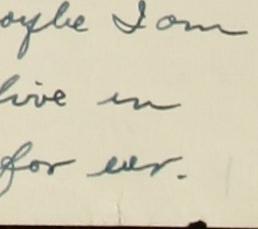 aybe I am
live in
for ever.